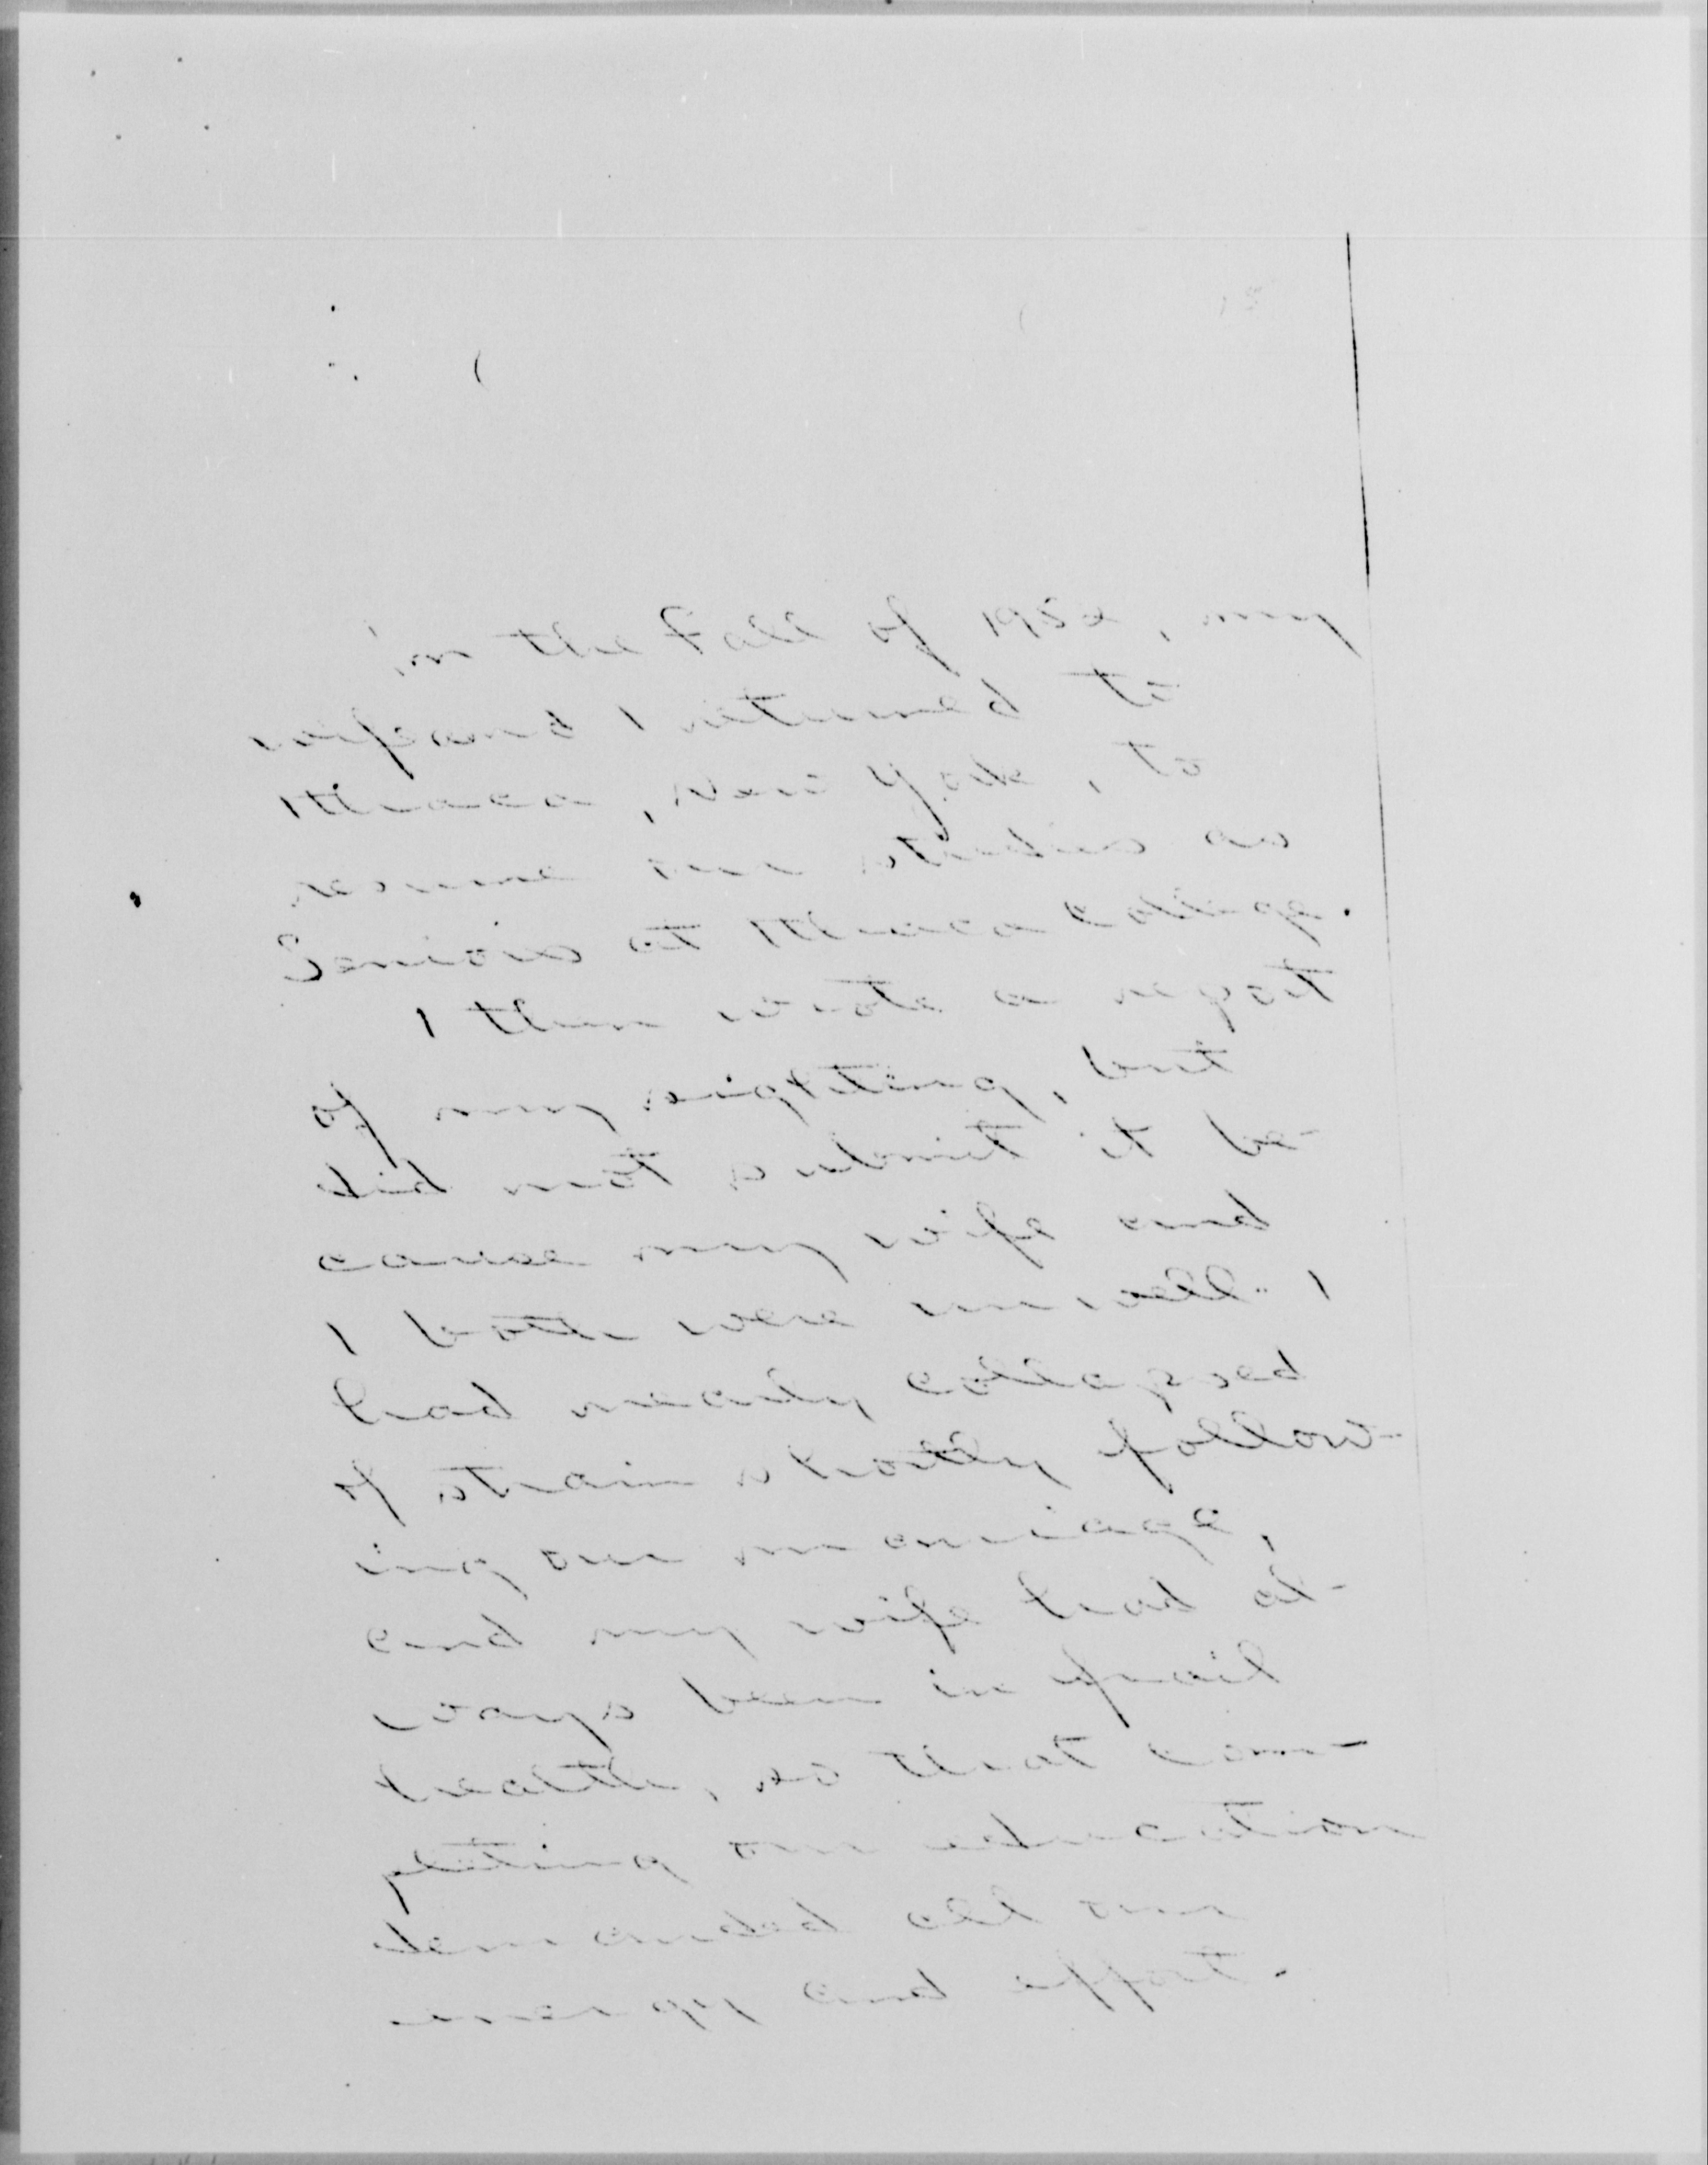 In the Fall of 1932, my
wife and I returned to
Ithaca, New York, to
resume our studies as
Seniors at Ithaca College.
I then wrote a report
of my sighting, but
did not submit it be-
cause my wife and
I both were unwell. I
had nearly collapsed
of strain shortly follow-
ing our marriage,
and my wife had al-
ways been in frail
health, so that com-
pleting our education
demanded all our
energy and effort.